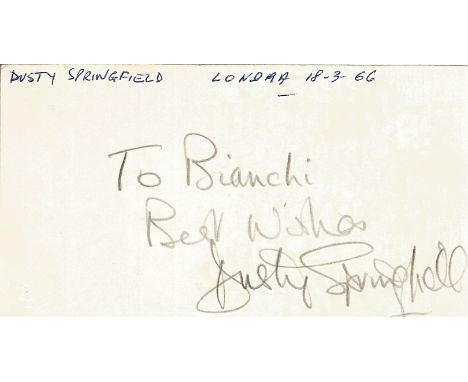 DUSTY SPRINGFIELD LONDRA 18-3-66
To Bianchi
Best Wishes
Dusty Springfield